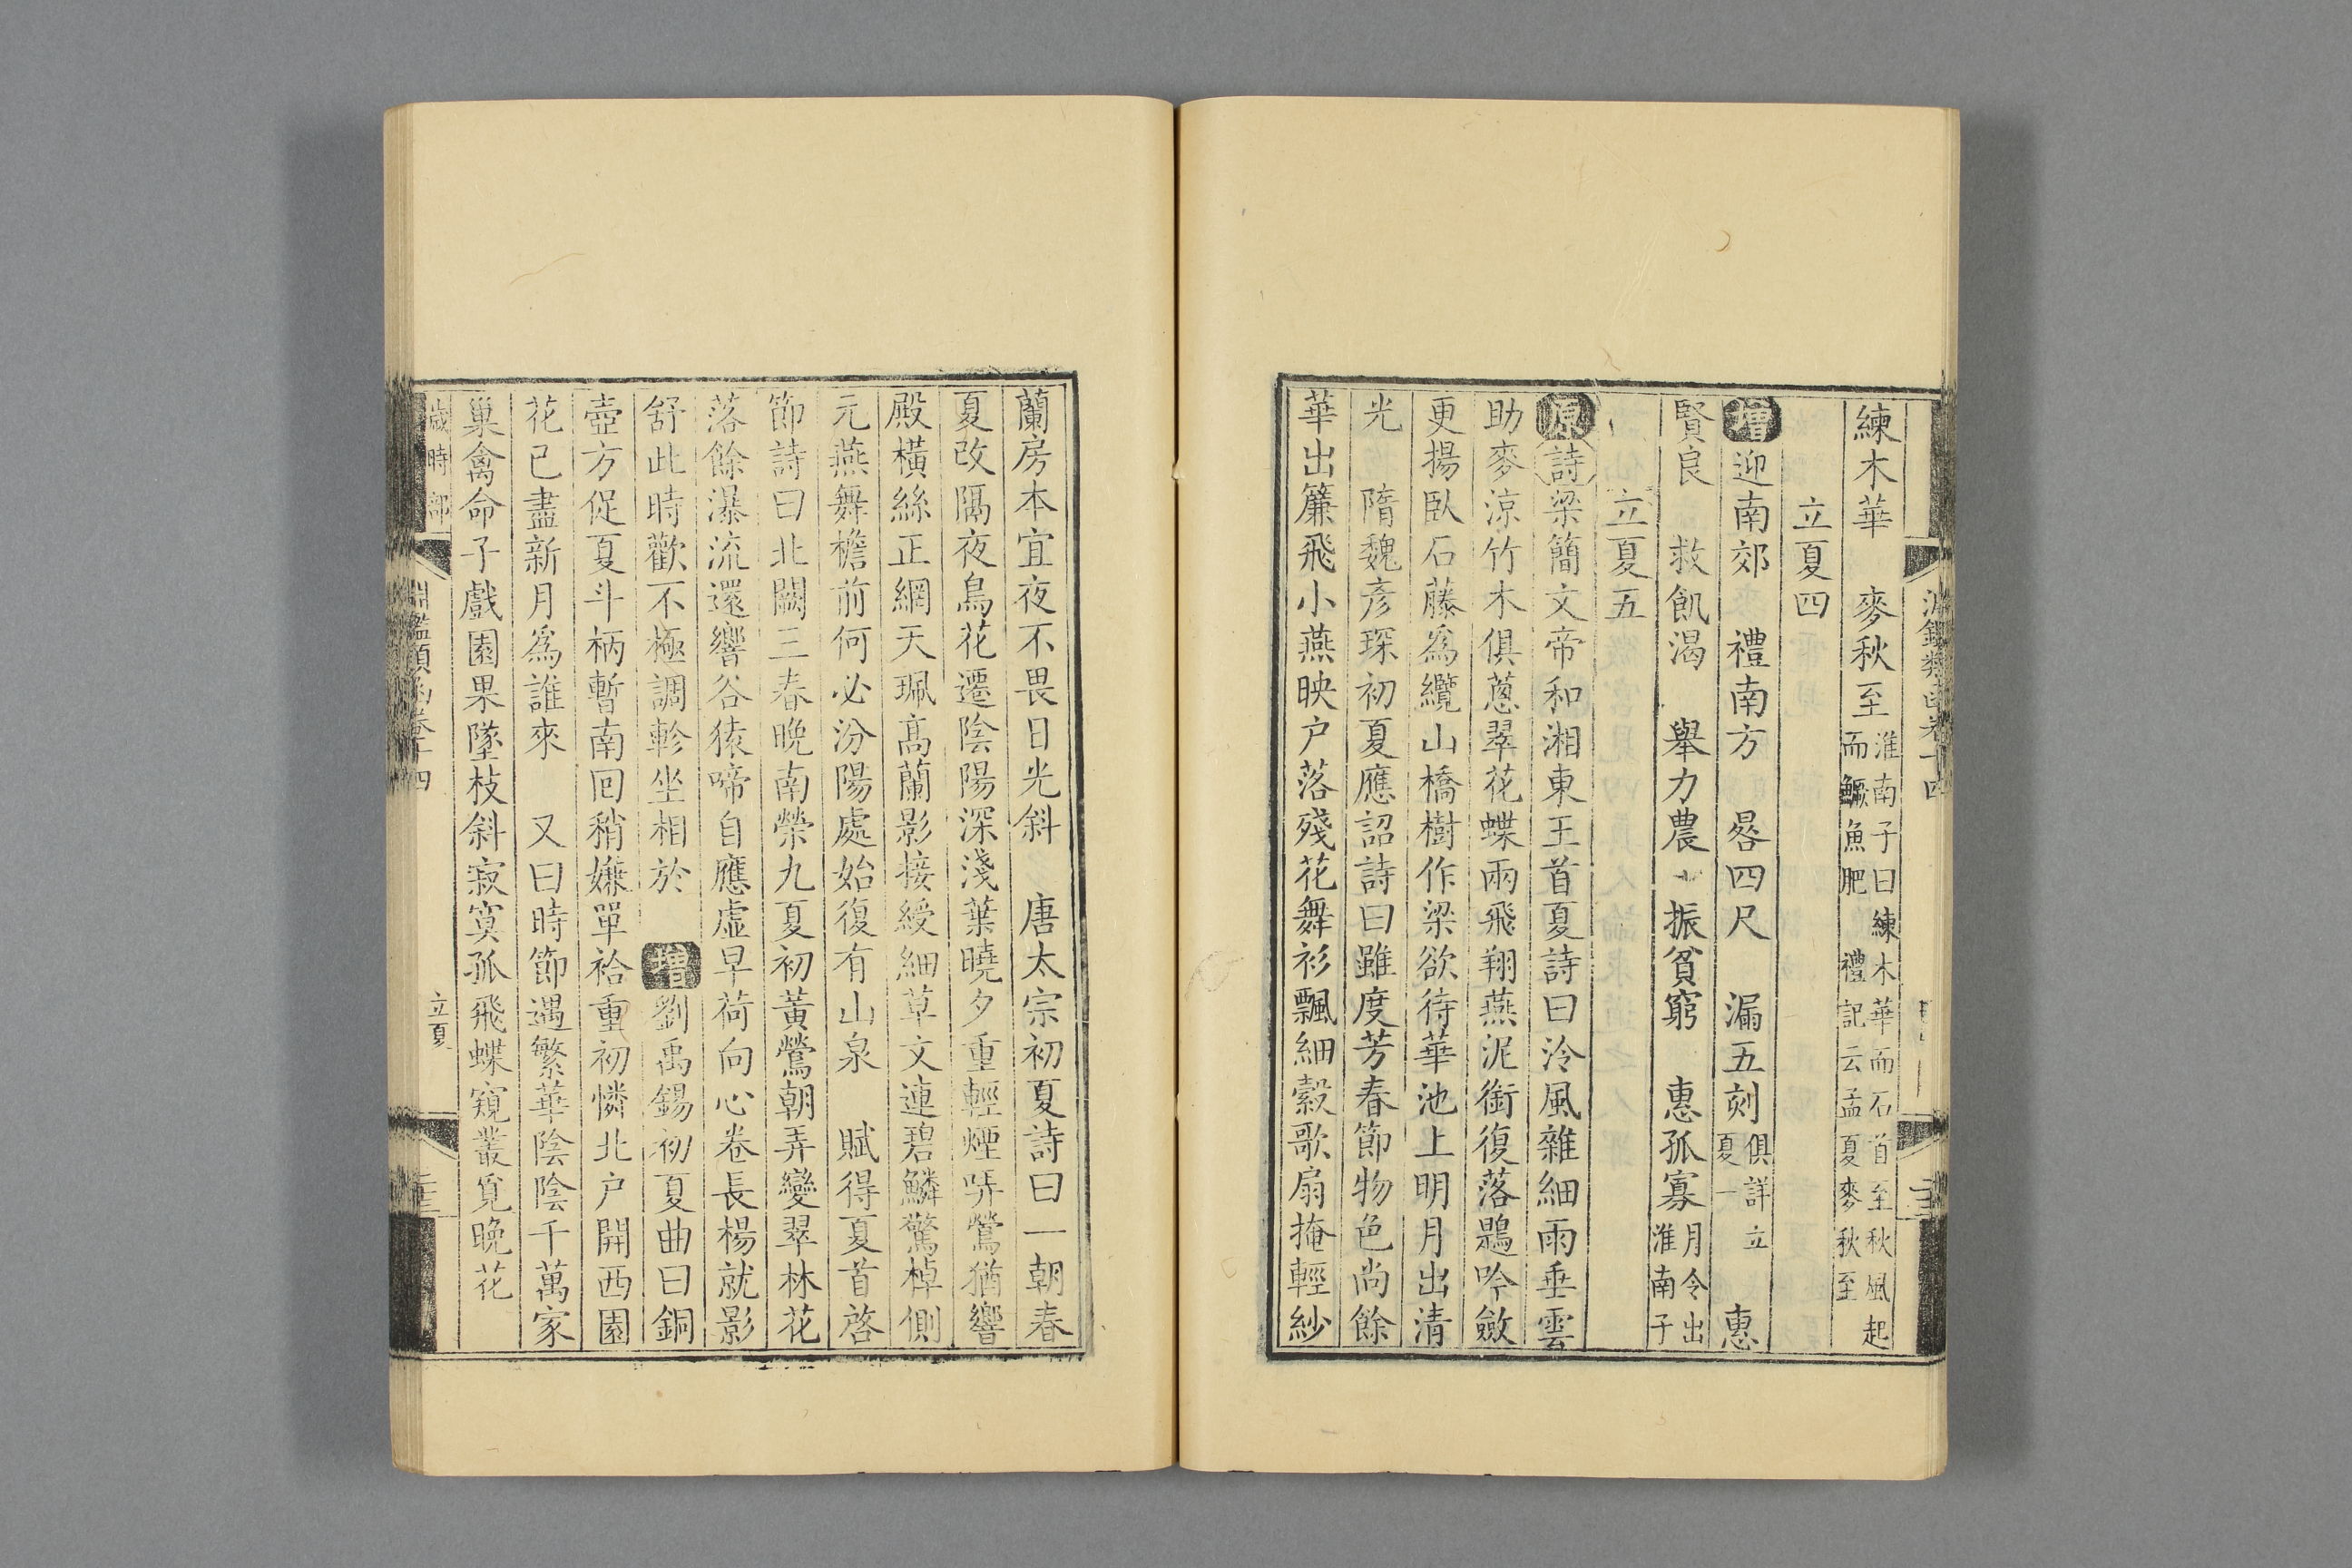 練木華　麥秋至　淮南子曰練木華而石首至秋風起
而鱖魚肥　禮記云孟夏麥秋至
立夏四
增迎南郊　禮南方　晷四尺　漏五刻　俱詳立
夏一　惠
賢良　救飢渴　舉力農　振貧窮　惠孤寡　月令出
淮南子
立夏五
原詩梁簡文帝和湘東王首夏詩曰泠風雜細雨垂雲
助麥涼竹木俱蔥翠花蝶兩飛翔燕泥銜復落鶗吟斂
更揚臥石藤爲纜山橋樹作梁欲待華池上明月出清
光　隋魏彥琛初夏應詔詩曰雖度芳春節物色尚餘
華出簾飛小燕映户落殘花舞衫飄細縠歌扇掩輕紗
蘭房本宜夜不畏日光斜　唐太宗初夏詩曰一朝春
夏改隔夜鳥花遷陰陽深淺葉曉夕重輕煙哢鶯猶響
殿橫絲正網天珮高蘭影接綬細草文連碧鱗驚棹側
元燕舞檐前何必汾陽處始復有山泉　賦得夏首啓
節詩曰北闕三春晚南榮九夏初黃鶯朝弄變翠林花
落餘瀑流還響谷猿啼自應虛早荷向心卷長楊就影
舒此時歡不極調軫坐相於　增劉禹錫初夏曲曰銅
壺方促夏斗柄暫南囘稍嫌單袷重初憐北户開西園
花已盡新月爲誰來　又曰時節遇繁華陰陰千萬家
巢禽命子戲園果墜枝斜寂寞孤飛蝶窺叢覓晚花
歲時部　淵鑑類函卷十四　立夏